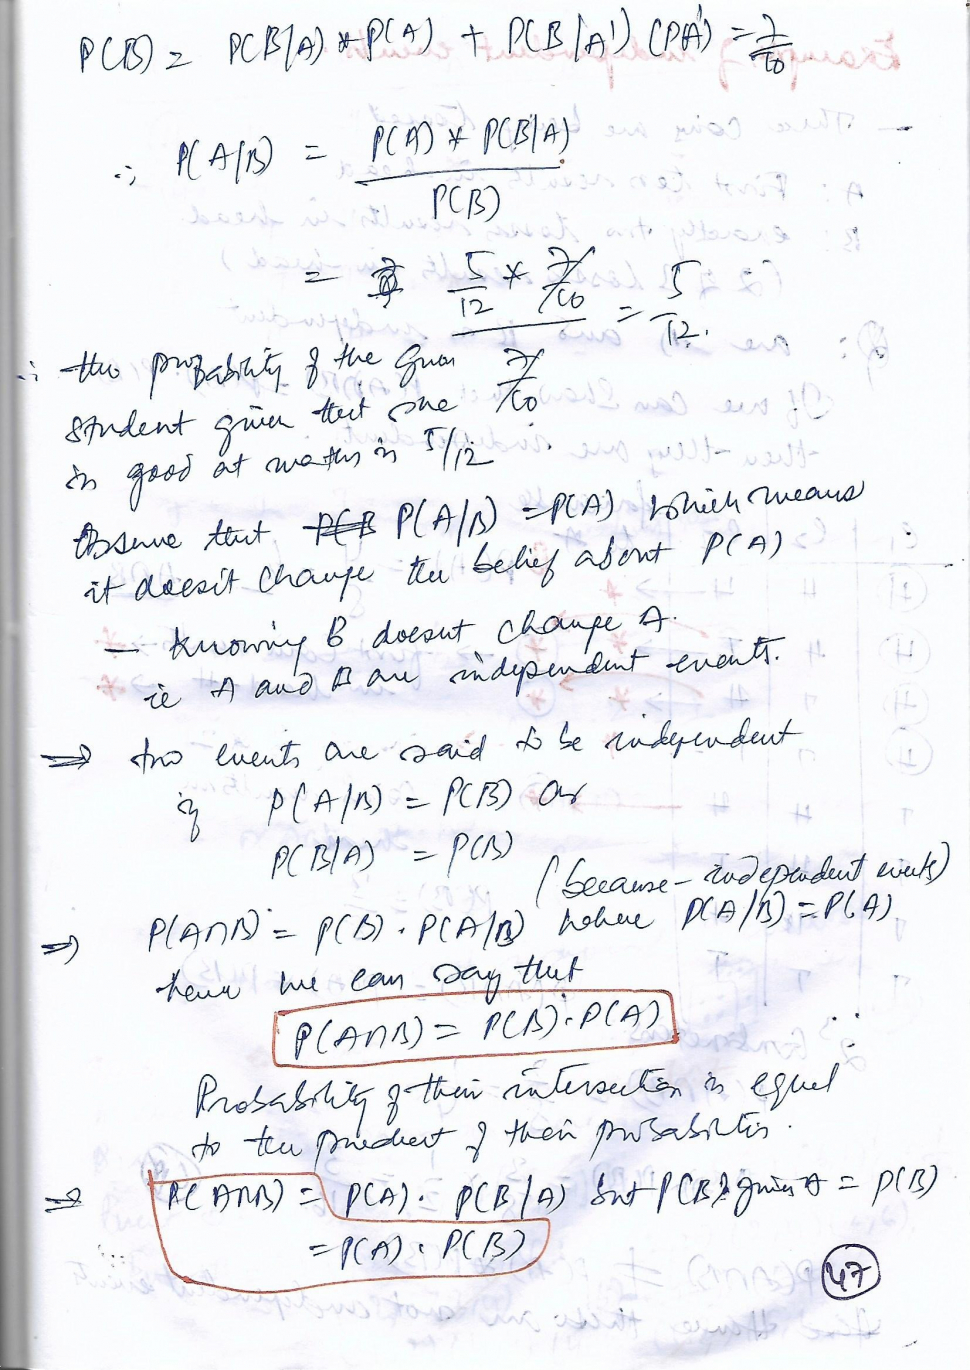 P(B) = P(B/A) * P(A) + P(B/A') (PA') = 7/10
∴ P(A/B) = P(A) * P(B/A)
P(B)
= 5/12 * 7/10 = 5/12.
7/10
∴ the probability of the
student given that one
is good at maths is 5/12
Observe that P(A/B) = P(A) which means
it doesn't change the belief about P(A)
— Knowing B doesnt change A.
ie A and B are independent events.
⇒ two events are said to be independent
if P(A/B) = P(B) or
P(B/A) = P(B)
(because - independent events)
⇒ P(A∩B) = P(B) . P(A/B) where P(A/B) = P(A)
hence we can say that
P(A∩B) = P(B) . P(A)
Probability of their intersection is equal
to the product of their probabilities.
⇒ P(A∩B) = P(A) . P(B/A) but P(B) given A = P(B)
= P(A) . P(B)
47